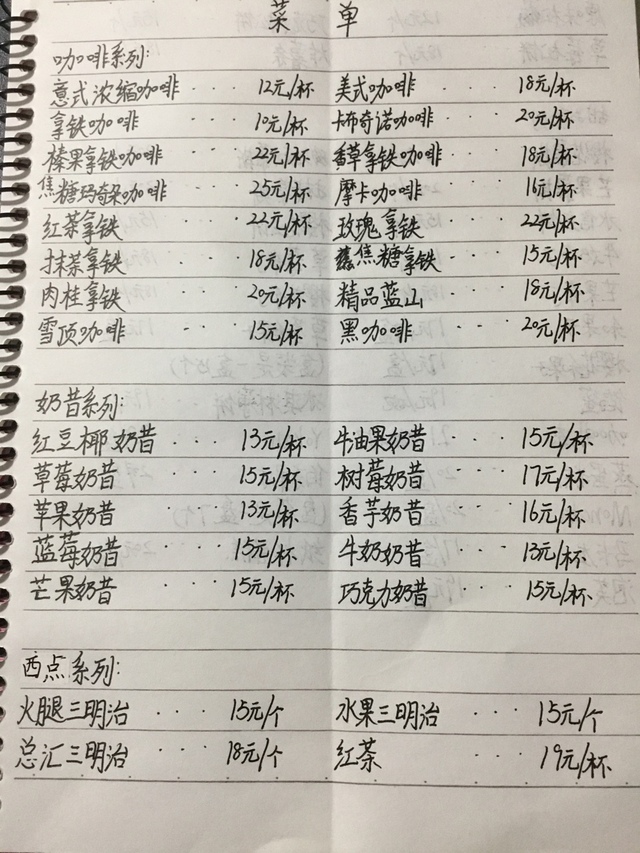 菜单
咖啡系列:
意式浓缩咖啡 · · · 12元/杯 美式咖啡 · · · 18元/杯
拿铁咖啡 · · · 10元/杯 卡布奇诺咖啡 · · · 20元/杯
榛果拿铁咖啡 · · · 22元/杯 香草拿铁咖啡 · · · 18元/杯
焦糖玛奇朵咖啡 · · · 25元/杯 摩卡咖啡 · · · 16元/杯
红茶拿铁 · · · 22元/杯 玫瑰拿铁 · · · 22元/杯
抹茶拿铁 · · · 18元/杯 焦糖拿铁 · · · 15元/杯
肉桂拿铁 · · · 20元/杯 精品蓝山 · · · 18元/杯
雪顶咖啡 · · · 15元/杯 黑咖啡 · · · 20元/杯
奶昔系列:
红豆椰奶昔 · · · 13元/杯 牛油果奶昔 · · · 15元/杯
草莓奶昔 · · · 15元/杯 树莓奶昔 · · · 17元/杯
苹果奶昔 · · · 13元/杯 香芋奶昔 · · · 16元/杯
蓝莓奶昔 · · · 15元/杯 牛奶奶昔 · · · 13元/杯
芒果奶昔 · · · 15元/杯 巧克力奶昔 · · · 15元/杯
西点系列:
火腿三明治 · · · 15元/个 水果三明治 · · · 15元/个
总汇三明治 · · · 18元/个 红茶 · · · 19元/杯